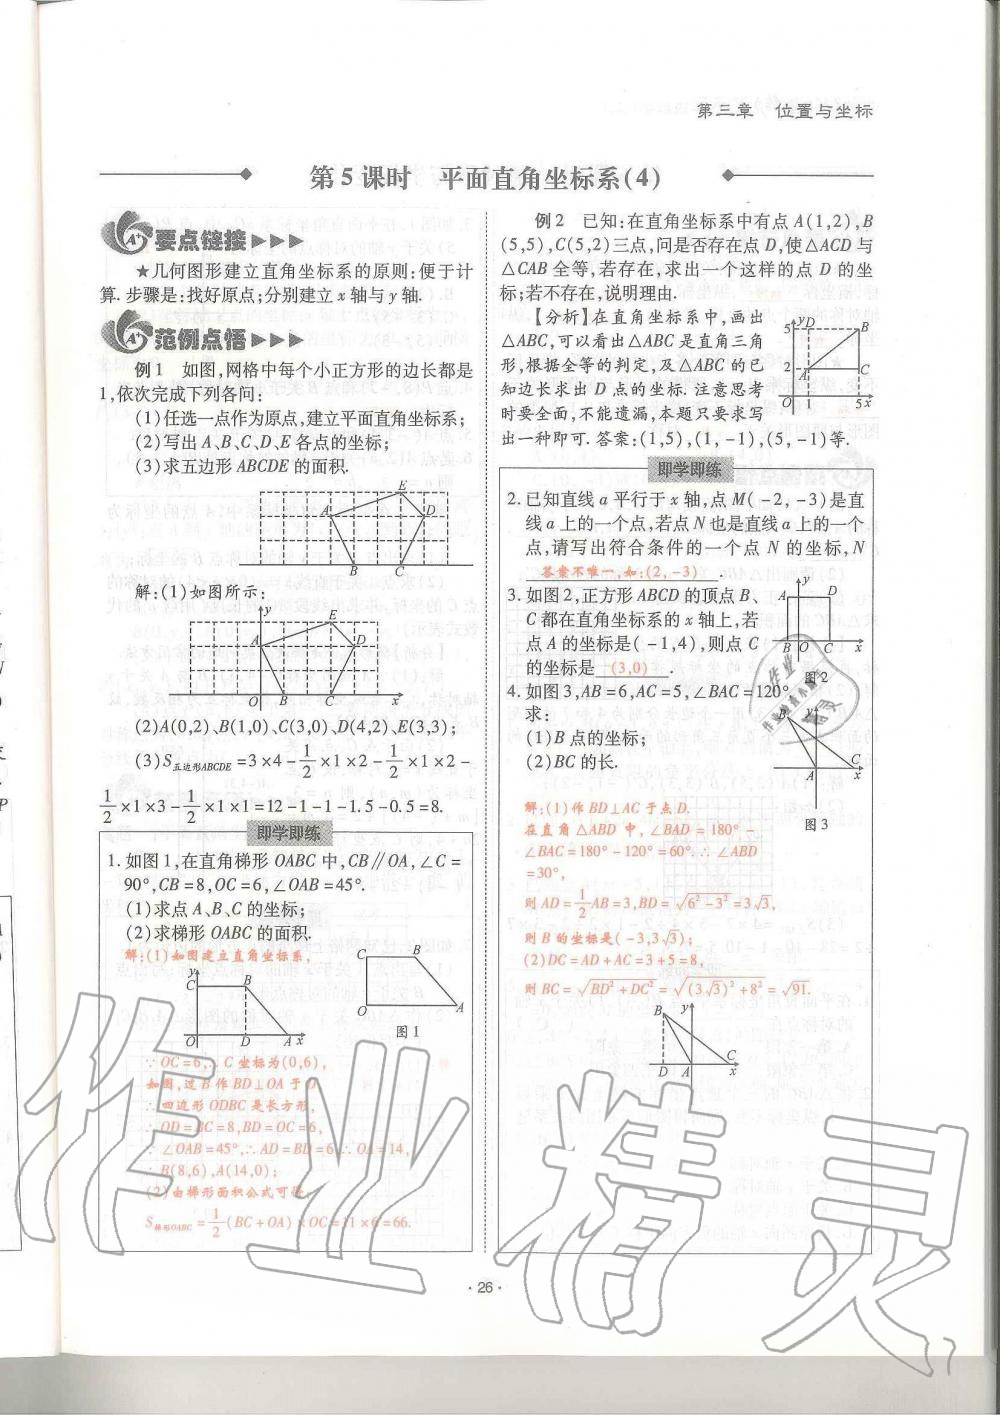 第三章 位置与坐标
第5课时 平面直角坐标系(4)
要点链接
★几何图形建立直角坐标系的原则:便于计
算.步骤是:找好原点;分别建立x轴与y轴.
范例点悟
例1 如图,网格中每个小正方形的边长都是
1,依次完成下列各问:
(1)任选一点作为原点,建立平面直角坐标系;
(2)写出A、B、C、D、E各点的坐标;
(3)求五边形ABCDE的面积.
E
A
D
B
C
解:(1)如图所示:
y
E
A
D
O
B
C
x
(2)A(0,2)、B(1,0)、C(3,0)、D(4,2)、E(3,3);
(3)S五边形ABCDE=3×4-1/2×1×2-1/2×1×2-
1/2×1×3-1/2×1×1=12-1-1-1.5-0.5=8.
即学即练
1.如图1,在直角梯形OABC中,CB∥OA,∠C=
90°,CB=8,OC=6,∠OAB=45°.
(1)求点A、B、C的坐标;
(2)求梯形OABC的面积.
解:(1)如图建立直角坐标系,
y
C
B
O
D
A
x
C
B
O
A
图1
∵OC=6,∴C坐标为(0,6),
如图,过B作BD⊥OA于D
∴四边形ODBC是长方形,
∴OD=BC=8,BD=OC=6,
∵∠OAB=45°,∴AD=BD=6,∴OA=14,
∴B(8,6),A(14,0);
(2)由梯形面积公式可得:
S梯形OABC=1/2(BC+OA)×OC=11×6=66.
例2 已知:在直角坐标系中有点A(1,2),B
(5,5),C(5,2)三点,问是否存在点D,使△ACD与
△CAB全等,若存在,求出一个这样的点D的坐
标;若不存在,说明理由.
【分析】在直角坐标系中,画出
△ABC,可以看出△ABC是直角三角
形,根据全等的判定,及△ABC的已
知边长求出D点的坐标.注意思考
时要全面,不能遗漏,本题只要求写
出一种即可.答案:(1,5),(1,-1),(5,-1)等.
y
D
B
5
2
A
C
O
1
5
x
即学即练
2.已知直线a平行于x轴,点M(-2,-3)是直
线a上的一个点,若点N也是直线a上的一个
点,请写出符合条件的一个点N的坐标,N
答案不唯一,如:(2,-3).
3.如图2,正方形ABCD的顶点B、
C都在直角坐标系的x轴上,若
点A的坐标是(-1,4),则点C
的坐标是 (3,0) .
y
A
D
B
O
C
x
图2
4.如图3,AB=6,AC=5,∠BAC=120°
求:
(1)B点的坐标;
(2)BC的长.
B
y
A
C
x
图3
解:(1)作BD⊥AC于点D.
在直角△ABD中,∠BAD=180°-
∠BAC=180°-120°=60°.∴∠ABD
=30°,
则AD=1/2AB=3,BD=√6²-3²=3√3,
则B的坐标是(-3,3√3);
(2)DC=AD+AC=3+5=8,
则BC=√BD²+DC²=√(3√3)²+8²=√91.
B
y
D
A
C
x
· 26 ·
作业精灵